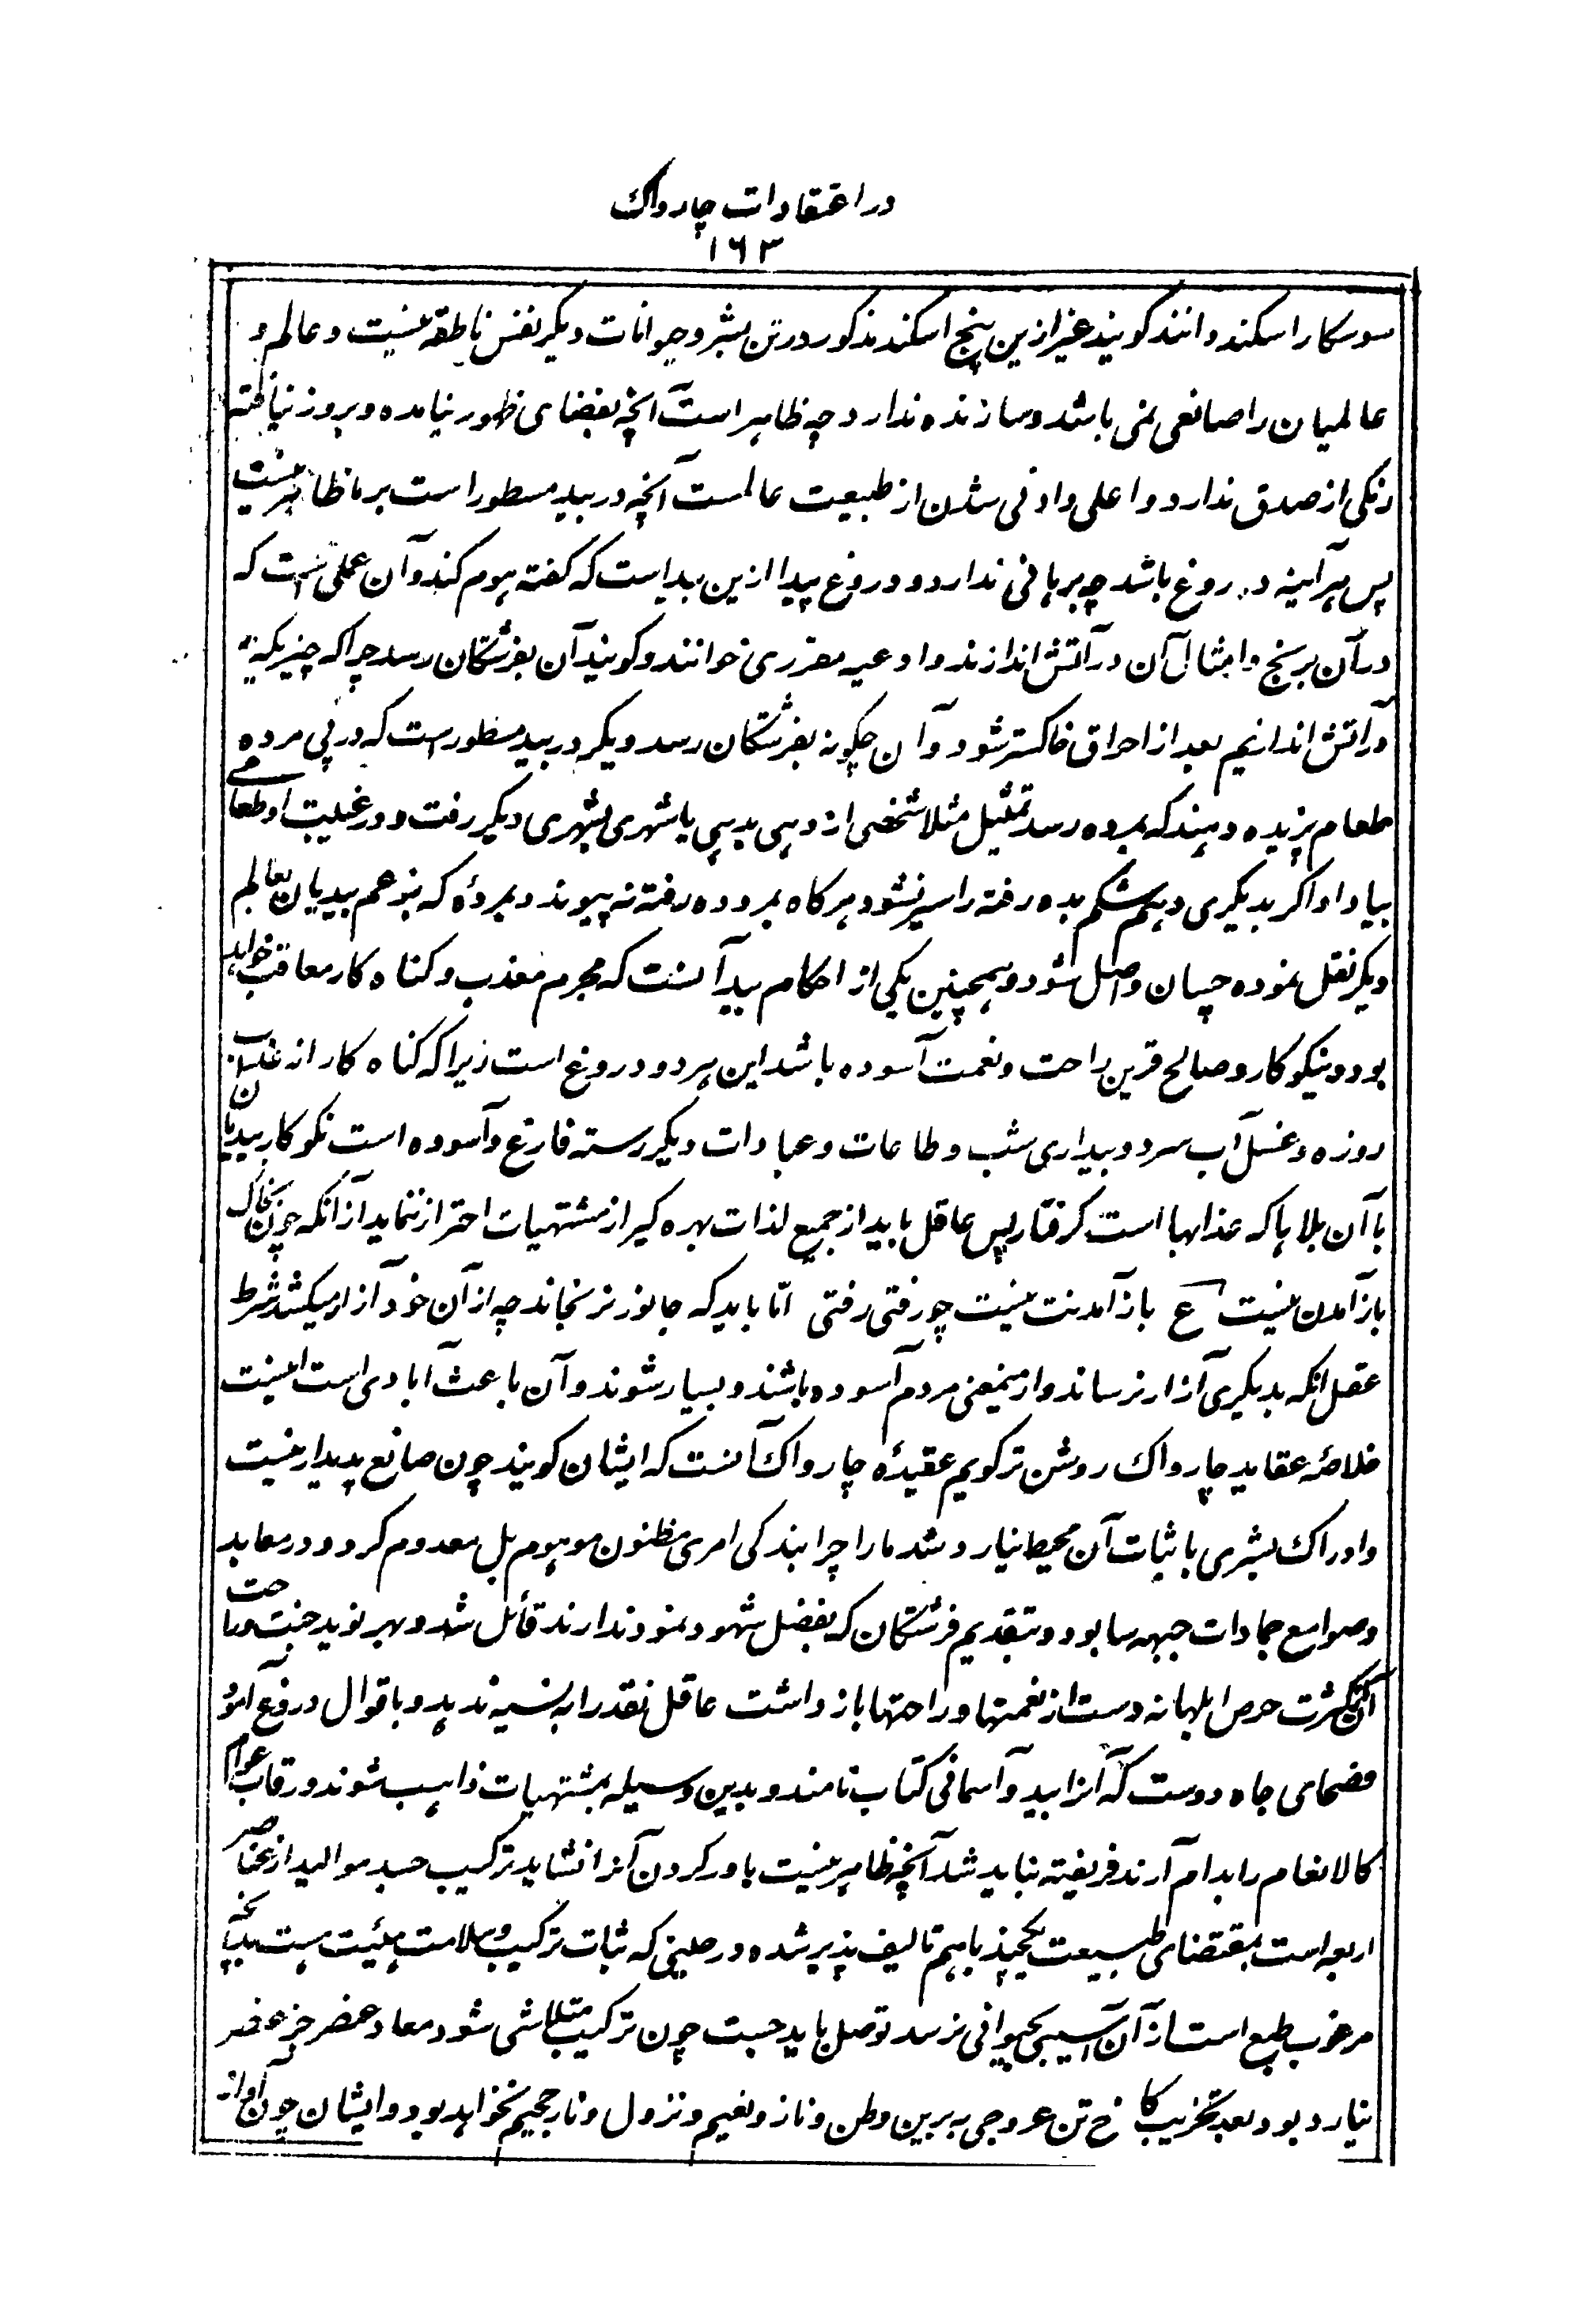 در اعتقادات چارواک
۱۶۳
سوسکار اسکند دانند کویند غیر ازین پنج اسکند مذکور در تن بشر و حیوانات دیکر نفس ناطقه نیست و عالم و
عالمیان را صانعی نمی باشد و سازنده ندارد چه ظاهر است آنچه بفضای ظهور نیامده و بروز نیافته
رنکی از صدق ندارد و اعلی و ادنی شدن از طبیعت عالمست آنچه در بید مسطور است بر ما ظاهر نیست
پس هر آینه دروغ باشد چه برهانی ندارد و دروغ پیدا ازین بید است که کفته هوم کند و آن عملی است که
در آن برنج و امثال آن در آتش اندازند و ادعیه مقرری خوانند و کویند آن بفرشتکان رسد چرا که چیزیکه
در آتش اندازیم بعد از احراق خاکستر شود و آن چکونه بفرشتکان رسد دیکر در بید مسطور است که در پی مرده
طعام پزیده دهند که بمرده رسد تمثیل مثلا شخصی از دهی بدهی یا شهری بشهری دیکر رفت و در غیبت او طعامی
بیاد او اکر بدیکری دهیم شکم بده رفته را سیر نشود هرکاه بمرد ده رفته نه پیوند د بمردۀ که بزعم بیدیان بعالم
دیکر نقل نموده چسان واصل شود و همچنین یکی از احکام بید آنست که مجرم معذب و کناه کار معاقب خواهد
بود و نیکو کار و صالح قرین راحت و نعمت آسوده باشد این هر دو دروغ است زیرا که کناه کار از عذاب
روزه و غسل آب سرد و بیداری شب و طاعات و عبادات دیکر رسته فارغ و آسوده است نکو کار بیدیان
با آن بلاها که عذابها است کرفتار پس عاقل باید از جمیع لذات بهره کیر از مشتهیات احتراز ننماید از آنکه چون بخاک
باز آمدن نیست ع باز آمدنت نیست چو رفتی رفتی امّا باید که جانور نرنجاند چه از آن خود آزار میکشد شرط
عقل آنکه بدیکری آزار نرساند و از ینمعنی مردم آسوده باشند و بسیار شوند و آن باعث آبادی است اینست
خلاصۀ عقاید چارواک روشن تر کویم عقیدۀ چارواک آنست که ایشان کویند چون صانع پدیدار نیست
و ادراک بشری باثبات آن محیط نیارد شد ما را چرا بندکی امری مظنون موهوم بل معدوم کرد و در معابد
و صوامع جمادات جبهه سا بود و بتقدیم فرشتکان که بفضل شهود نمود ندارند قائل شد و بهر نوید جنت و راحت
آن بکثرت حرص ابلهانه دست از نعمتها و راحتها باز داشت عاقل نقد را به نسیه ندهد و باقوال دروغ آمود
فصحای جاه دوست که آنرا بید و آسمانی کتاب نامند و بدین وسیله بمشتهیات ذاهب شوند و رقاب عوام
کالانعام را بدام آرند فریفته نباید شد آنچه ظاهر نیست باور کردن آنرا نشاید ترکیب جسد موالید از عناصر
اربعه است بمقتضای طبیعت یکچند باهم تالیف پذیر شده در حینی که ثبات ترکیب و سلامت هیئت هست بدانچه
مرغوب طبع است از آن آسیبی بحیوانی نرسد توصل باید جست چون ترکیب متلاشی شود معاد عنصر جز عنصر
نیارد بود بعد تخریب کاخ تن عروجی به برین وطن و ناز و نعیم و نزول و نار جحیم نخواهد بود و ایشان چون آواز